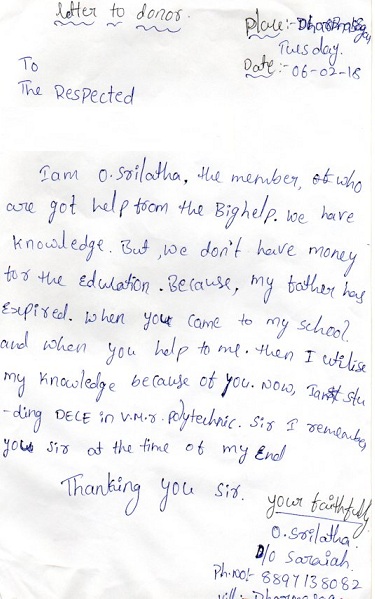 Letter to donor.
Place:- Dharmasagar
Tuesday.
Date:- 06-02-18
To
The Respected
Iam O. Srilatha, the member, of who
are got help from the Bighelp. we have
knowledge. But, we don't have money
for the Education. Because, my father has
Expired. when you came to my school.
and when you help to me. then I utilise
my knowledge because of you. Now, Iam stu
-ding DECE in V.M.r. Polytechnic. Sir I remember
you sir at the time of my End
Thanking you Sir.
your faithfully
O. Srilatha.
D/o Saraiah.
Ph.no:- 8897138082
vill:- Dharmasagar